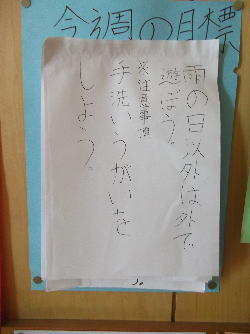 今週の目標
雨の日以外は外で
遊ぼう。
※注意事項
手洗いうがいを
しよう。